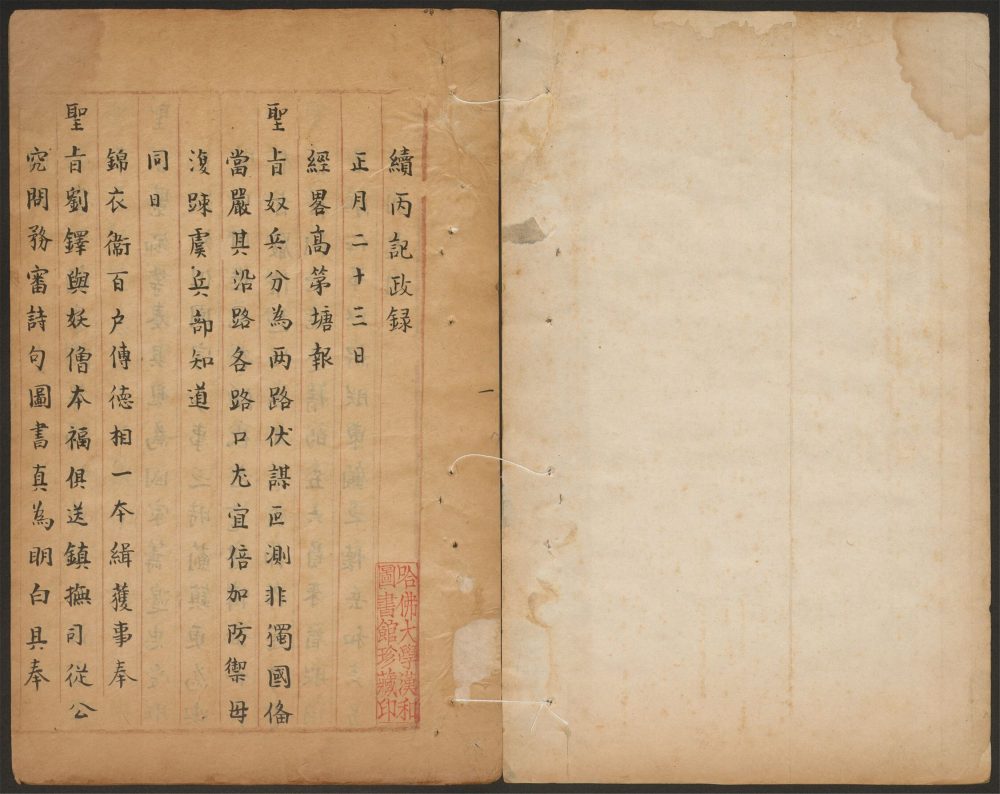 續丙記政録
正月二十三日
經畧髙第塘報
聖旨奴兵分為两路伏謀叵測非獨國俻
當嚴其沿路各路口尤宜倍加防禦毋
復踈虞兵部知道
同日
錦衣衞百户傳德相一本緝獲事奉
聖旨劉鐸與妖僧本福俱送鎮撫司從公
究問務審詩句圖書真為明白具奉
一
哈佛大學漢和
圖書館珍藏印